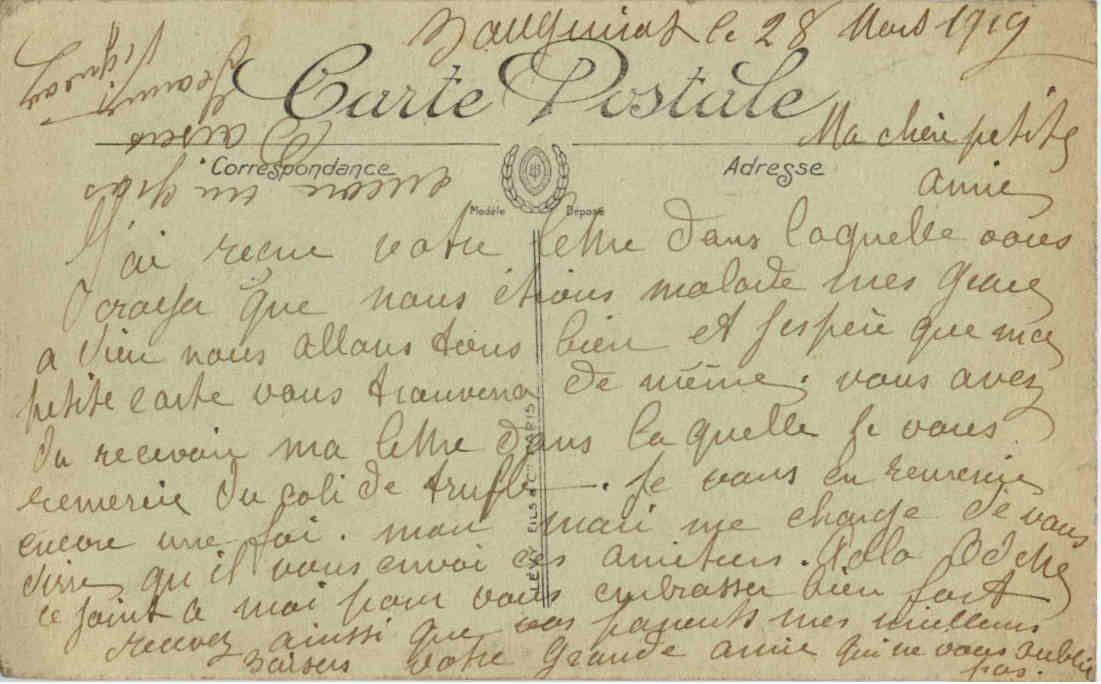 le 28 Mars 1919
Carte Postale
Ma chère petite
Correspondance
Adresse
amie
Modèle Déposé
J'ai recue votre lettre dans laquelle vous
croyer que nous étions malade mes grace
a dieu nous allons tous bien et j'espère que ma
petite carte vous trouvera de même. vous avez
du recevoir ma lettre dans laquelle je vous
remercie du coli de truffe. je vous en remercie
encore une foi. mon mari me charge de vous
dirre qu'il vous envoi ces amitiers.
ce joint a moi pour vous embrasser bien fort
recevez ainssi que vos parents mes meilleurs
Baisers votre Grande amie qui ne vous oublie
pas.
encore un gros
Baisers
LÉVY FILS & Cie PARIS